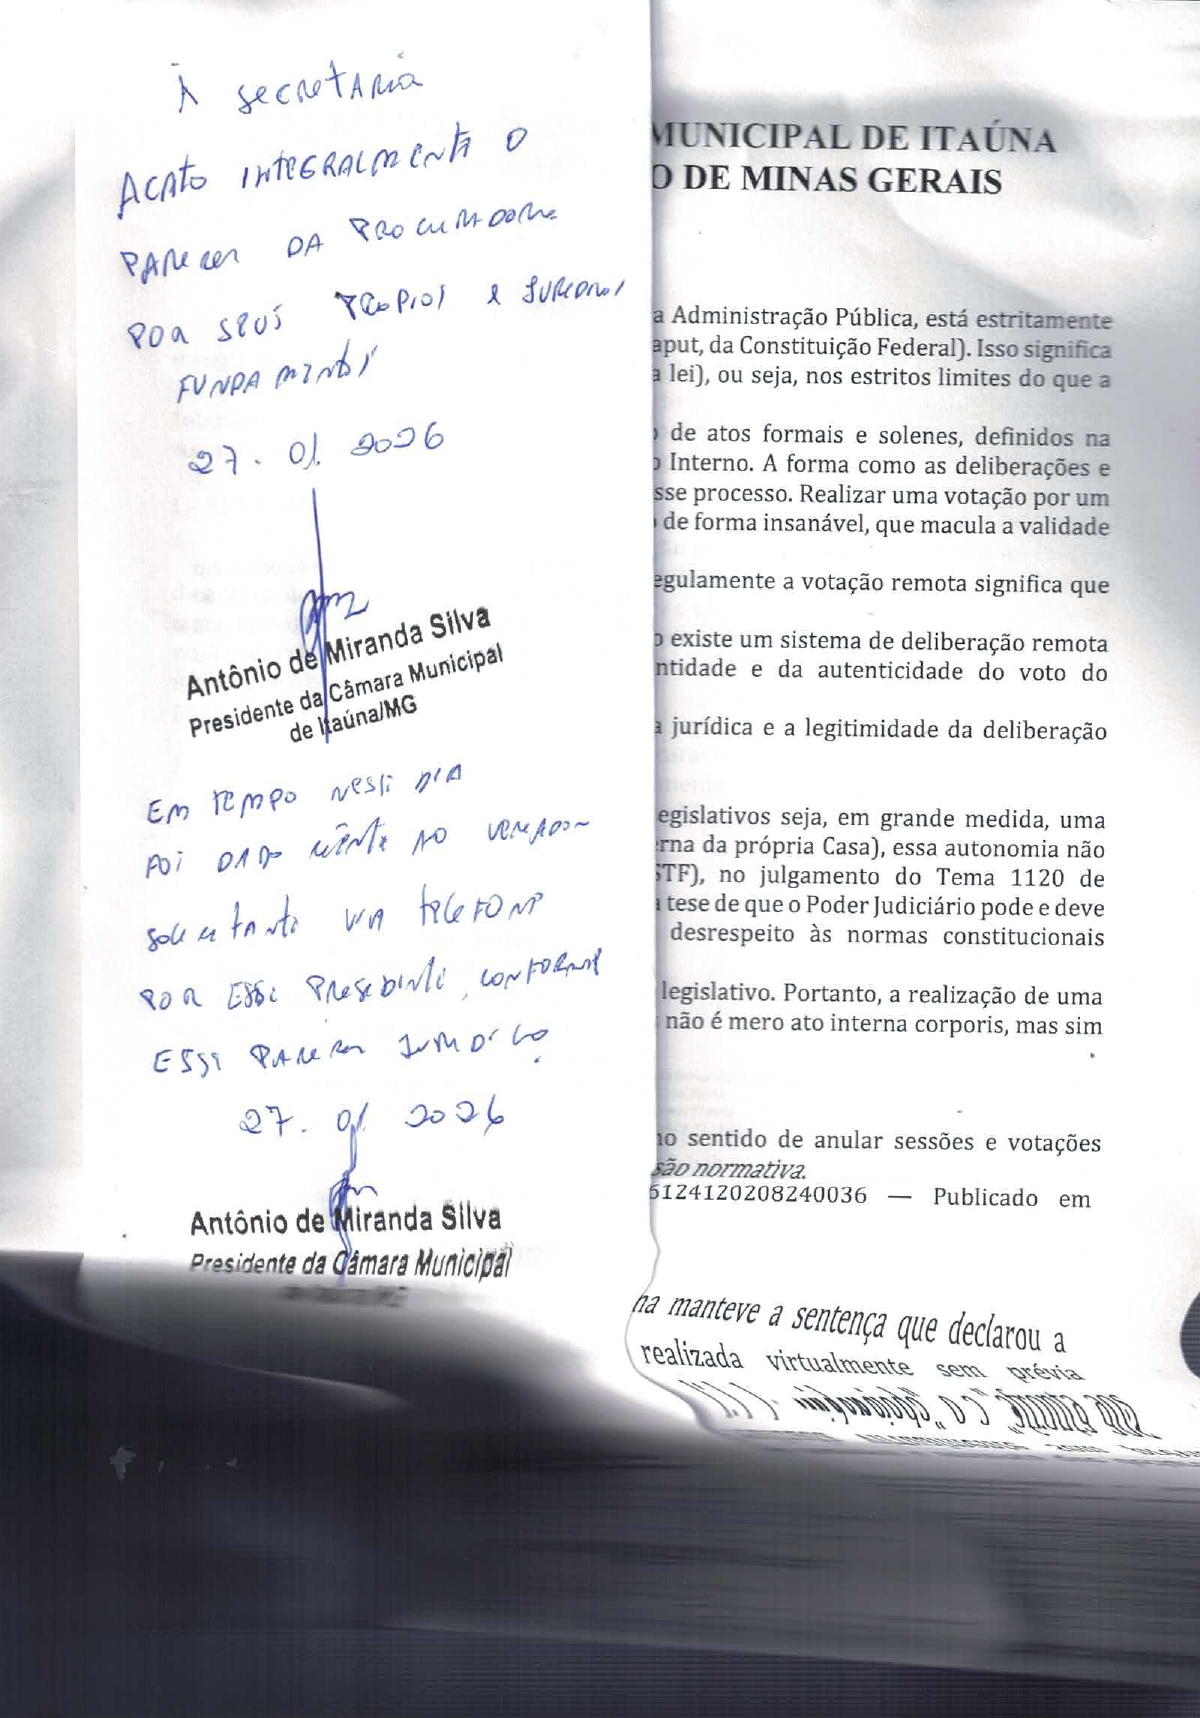 À secretaria
Acato integralmente o
parecer da procuradoria
por seus
fundamentos
27. 01. 2026
Antônio de Miranda Silva
Presidente da Câmara Municipal
de Itaúna/MG
Em tempo neste dia
foi dado ciência ao vereador
solicitante via telefone
por esse presidente, conforme
esse parecer jurídico.
27. 01. 2026
Antônio de Miranda Silva
Presidente da Câmara Municipal
MUNICIPAL DE ITAÚNA
O DE MINAS GERAIS
a Administração Pública, está estritamente
aput, da Constituição Federal). Isso significa
a lei), ou seja, nos estritos limites do que a
de atos formais e solenes, definidos na
o Interno. A forma como as deliberações e
sse processo. Realizar uma votação por um
de forma insanável, que macula a validade
egulamente a votação remota significa que
o existe um sistema de deliberação remota
ntidade e da autenticidade do voto do
a jurídica e a legitimidade da deliberação
egislativos seja, em grande medida, uma
erna da própria Casa), essa autonomia não
STF), no julgamento do Tema 1120 de
a tese de que o Poder Judiciário pode e deve
desrespeito às normas constitucionais
legislativo. Portanto, a realização de uma
não é mero ato interna corporis, mas sim
no sentido de anular sessões e votações
são normativa.
61241202082400​36 — Publicado em
na manteve a sentença que declarou a
realizada virtualmente sem prévia